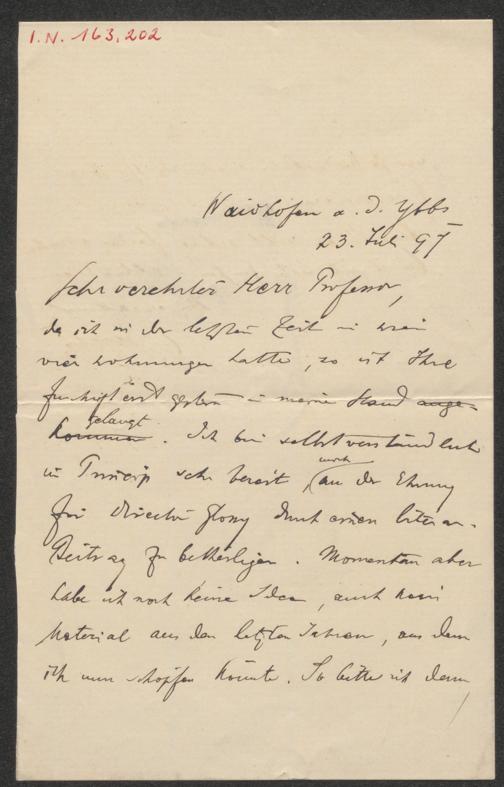 I.N. 163,202
Waidhofen a. d. Ybbs
23. Juli 97
Sehr verehrter Herr Professor,
da ich in der letzten Zeit in Wien
vier Wohnungen hatte, so ist Ihre
Zuschrift erst gestern in meine Hand ange-
kommen gelangt. Ich bin selbstverständlich
im Princip sehr bereit, mich an der Ehrung
für Director Glossy durch einen literar.
Beitrag zu betheiligen. Momentan aber
habe ich noch keine Idee, auch kein
Material aus den letzten Jahren, aus dem
ich nun schöpfen könnte. So bitte ich denn